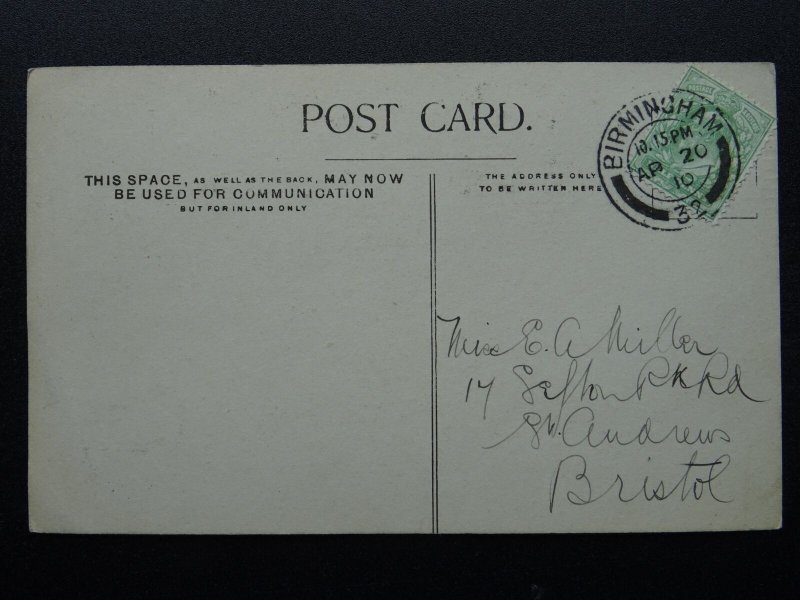 POST CARD.
THIS SPACE, AS WELL AS THE BACK, MAY NOW
BE USED FOR COMMUNICATION
BUT FOR INLAND ONLY
THE ADDRESS ONLY
TO BE WRITTEN HERE
BIRMINGHAM
10.15PM
AP 20
10
Miss E. A Miller
17 Sefton Pk Rd
St. Andrews
Bristol